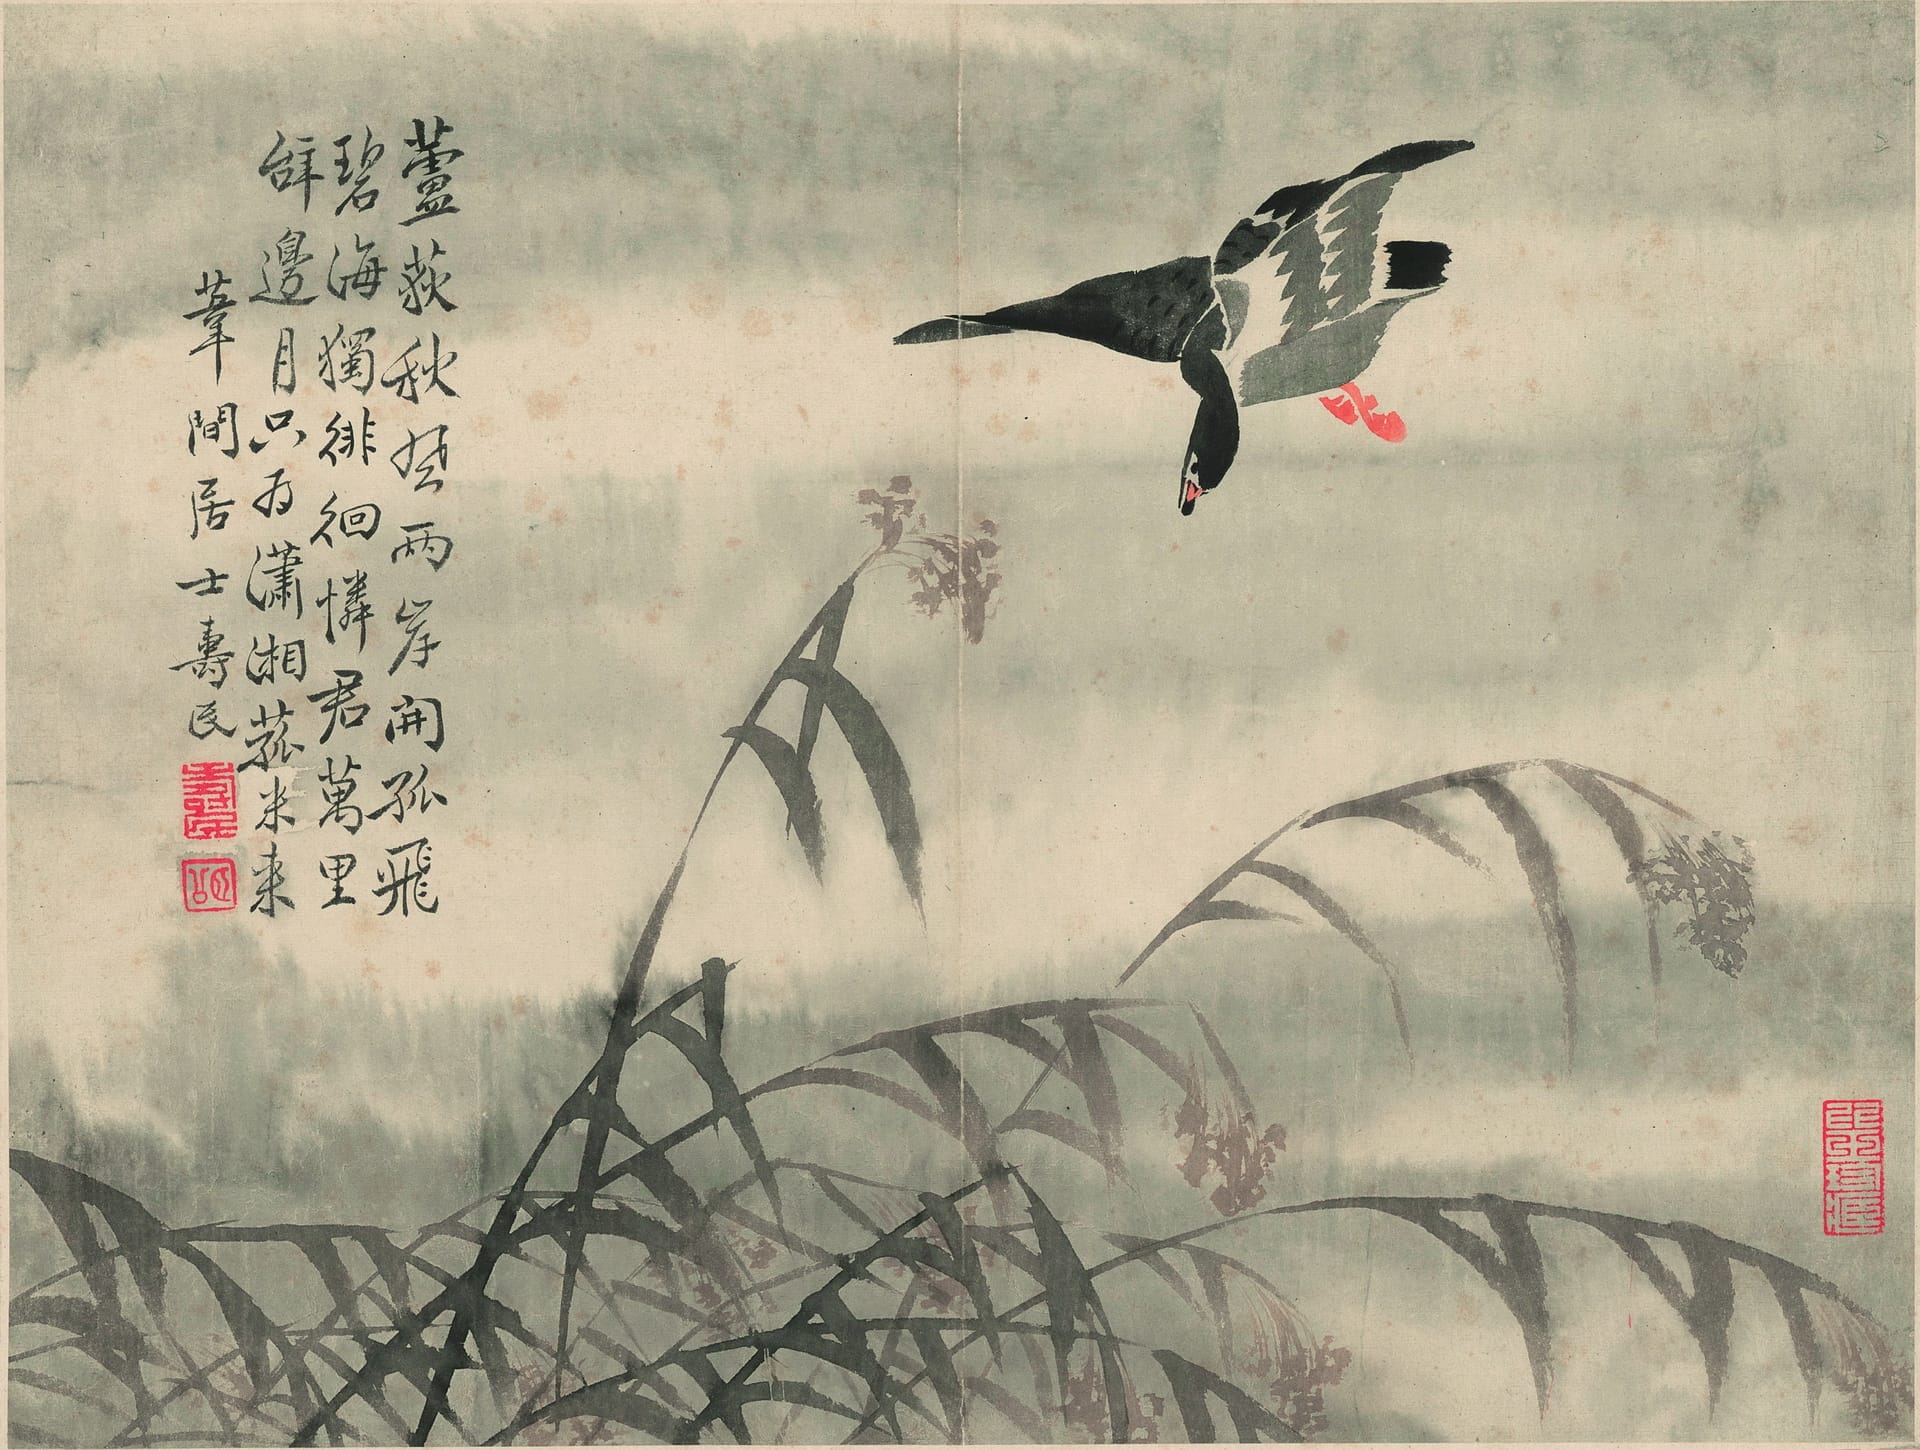 蘆荻秋風兩岸開孤飛
碧海獨徘徊憐君萬里
辝邊月只为瀟湘菰米来
葦間居士壽民